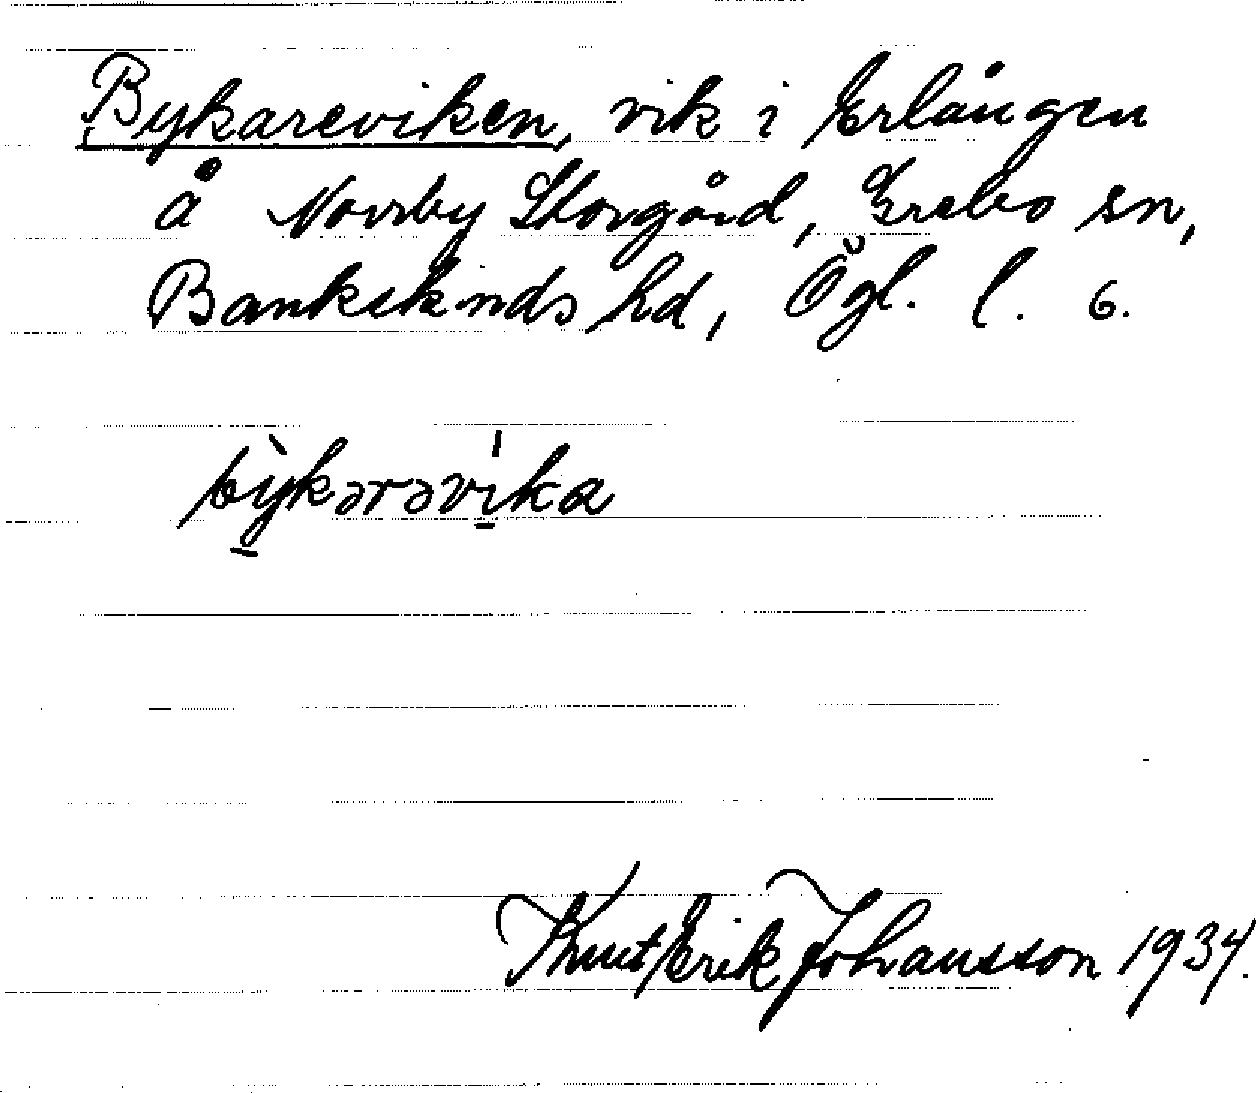 Bykareviken, vik i Erlången
å Norrby Storgård, Grebo sn,
Bankekinds hd, Ögl. l. 6.
bỳ̱kərəvi̱̍ka
Knut Erik Johansson 1934.